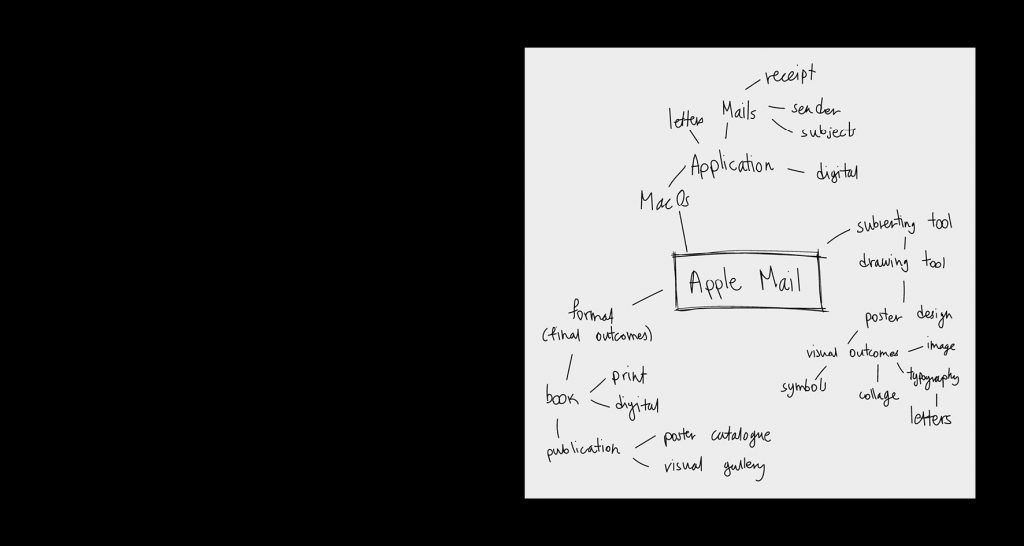 receipt
letters
Mails
sender
subject
Application
digital
MacOs
subverting tool
Apple Mail
drawing tool
format
(final outcomes)
poster design
visual outcomes
image
symbols
collage
typography
letters
book
print
digital
publication
poster catalogue
visual gallery